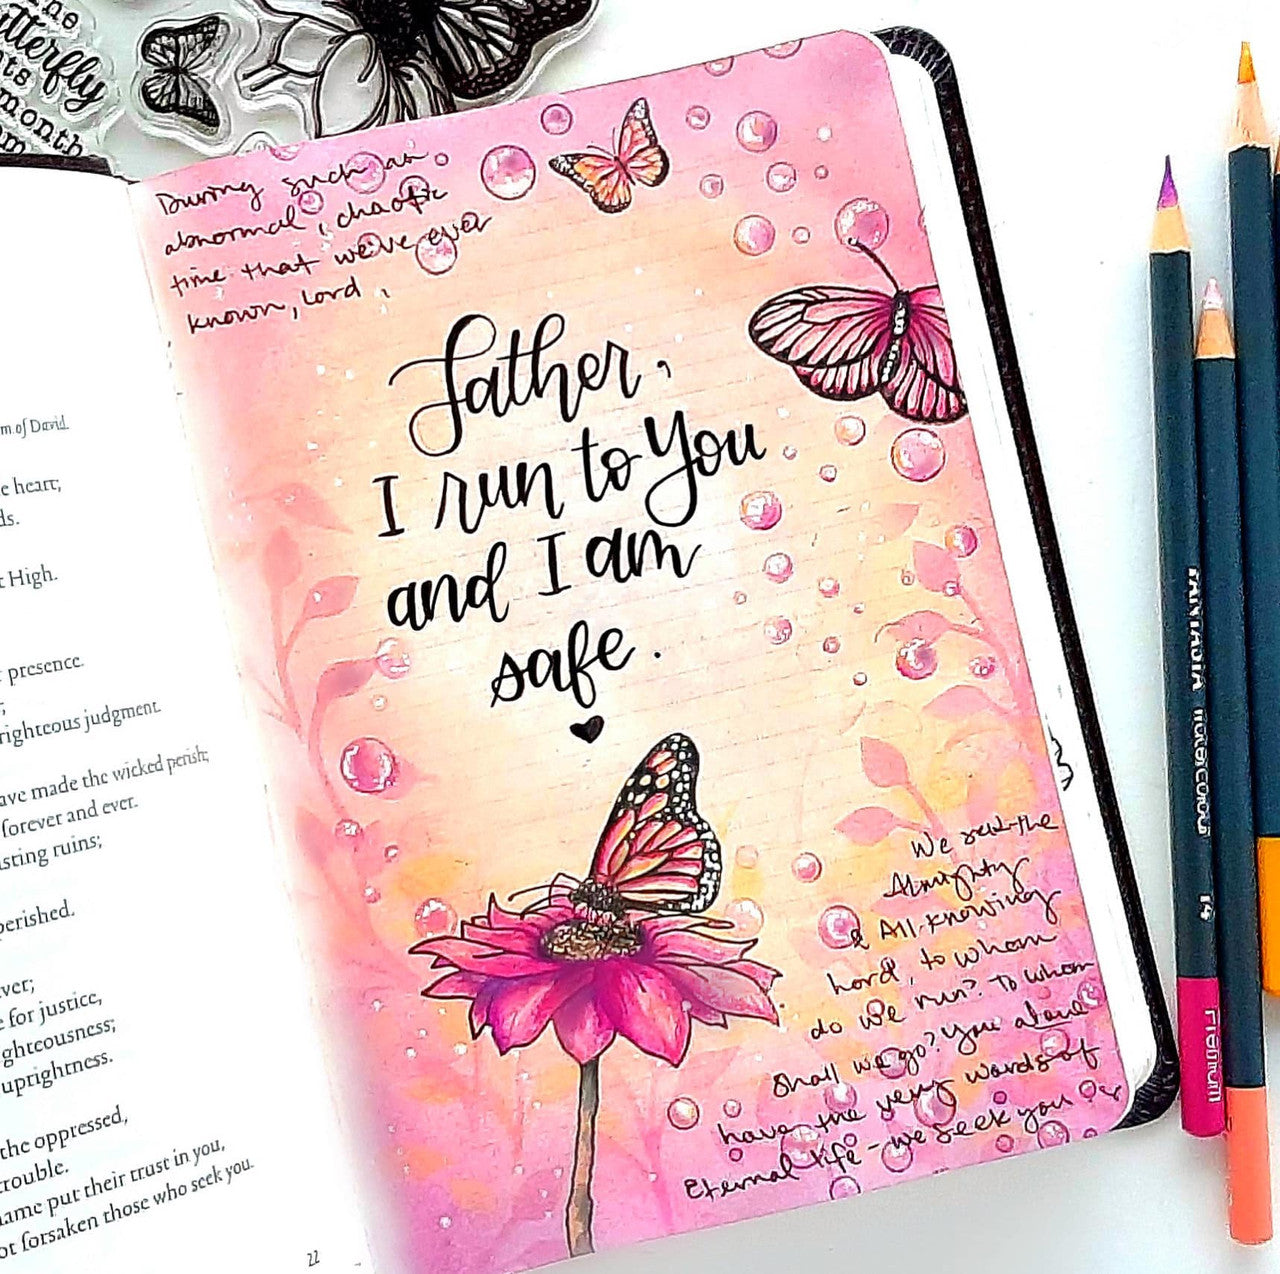 the
utterfly
nts
month
om
During such an
abnormal, chaotic
time that we've ever
known, Lord,
Father,
I run to You
and I am
safe.
We seek the
Almighty
& All-knowing
Lord, to whom
do we run? To whom
shall we go? You alone
have the very words of
Eternal life - we seek you
m of David.
e heart;
ds.
t High.
r presence.
;
righteous judgment.
ave made the wicked perish;
forever and ever.
sting ruins;
perished.
ver;
e for justice,
ghteousness;
uprightness.
the oppressed,
trouble.
name put their trust in you,
ot forsaken those who seek you.
22
FANTASIA WATERCOLOR 14
Premium